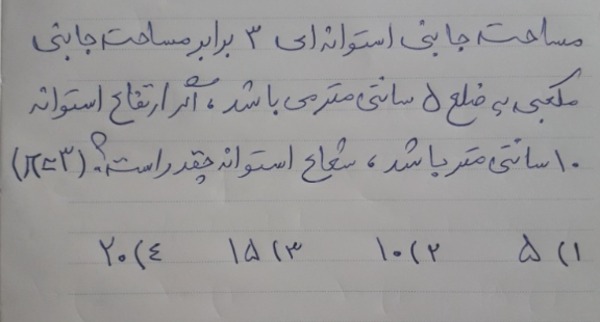 مساحت جانبی استوانه‌ای ۳ برابر مساحت جانبی
مکعبی به ضلع ۵ سانتی متر می باشد ، اگر ارتفاع استوانه
۱۰ سانتی متر باشد ، شعاع استوانه چقدر است؟ (π=۳)
۱) ۵ ۲) ۱۰ ۳) ۱۵ ۴) ۲۰